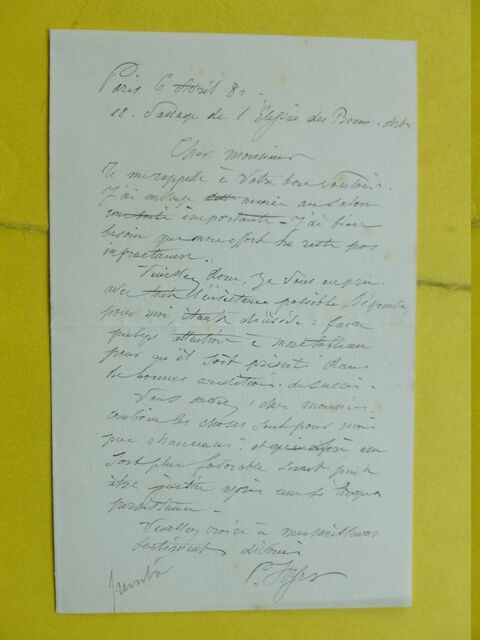 Paris 6 Avril 8
18. Passage de l'Elysée des Beaux-Arts
Cher monsieur
Je me rappelle à votre bon souvenir.
J'ai envoyé au Salon
importante - J'ai bien
besoin que mon effort ne reste pas
infructueux.
Veuillez donc, je vous en prie
avec toute l'insistance possible,
pour moi faire
quelque attention à mon tableau
pour qu'il soit présenté dans
de bonnes conditions de succès.
Vous savez, cher monsieur,
combien les choses sont pour moi
peu chanceuses et un
sort plus favorable serait peut
être justice après une si longue
persistance -
Veuillez croire à mes meilleurs
sentiments
P.